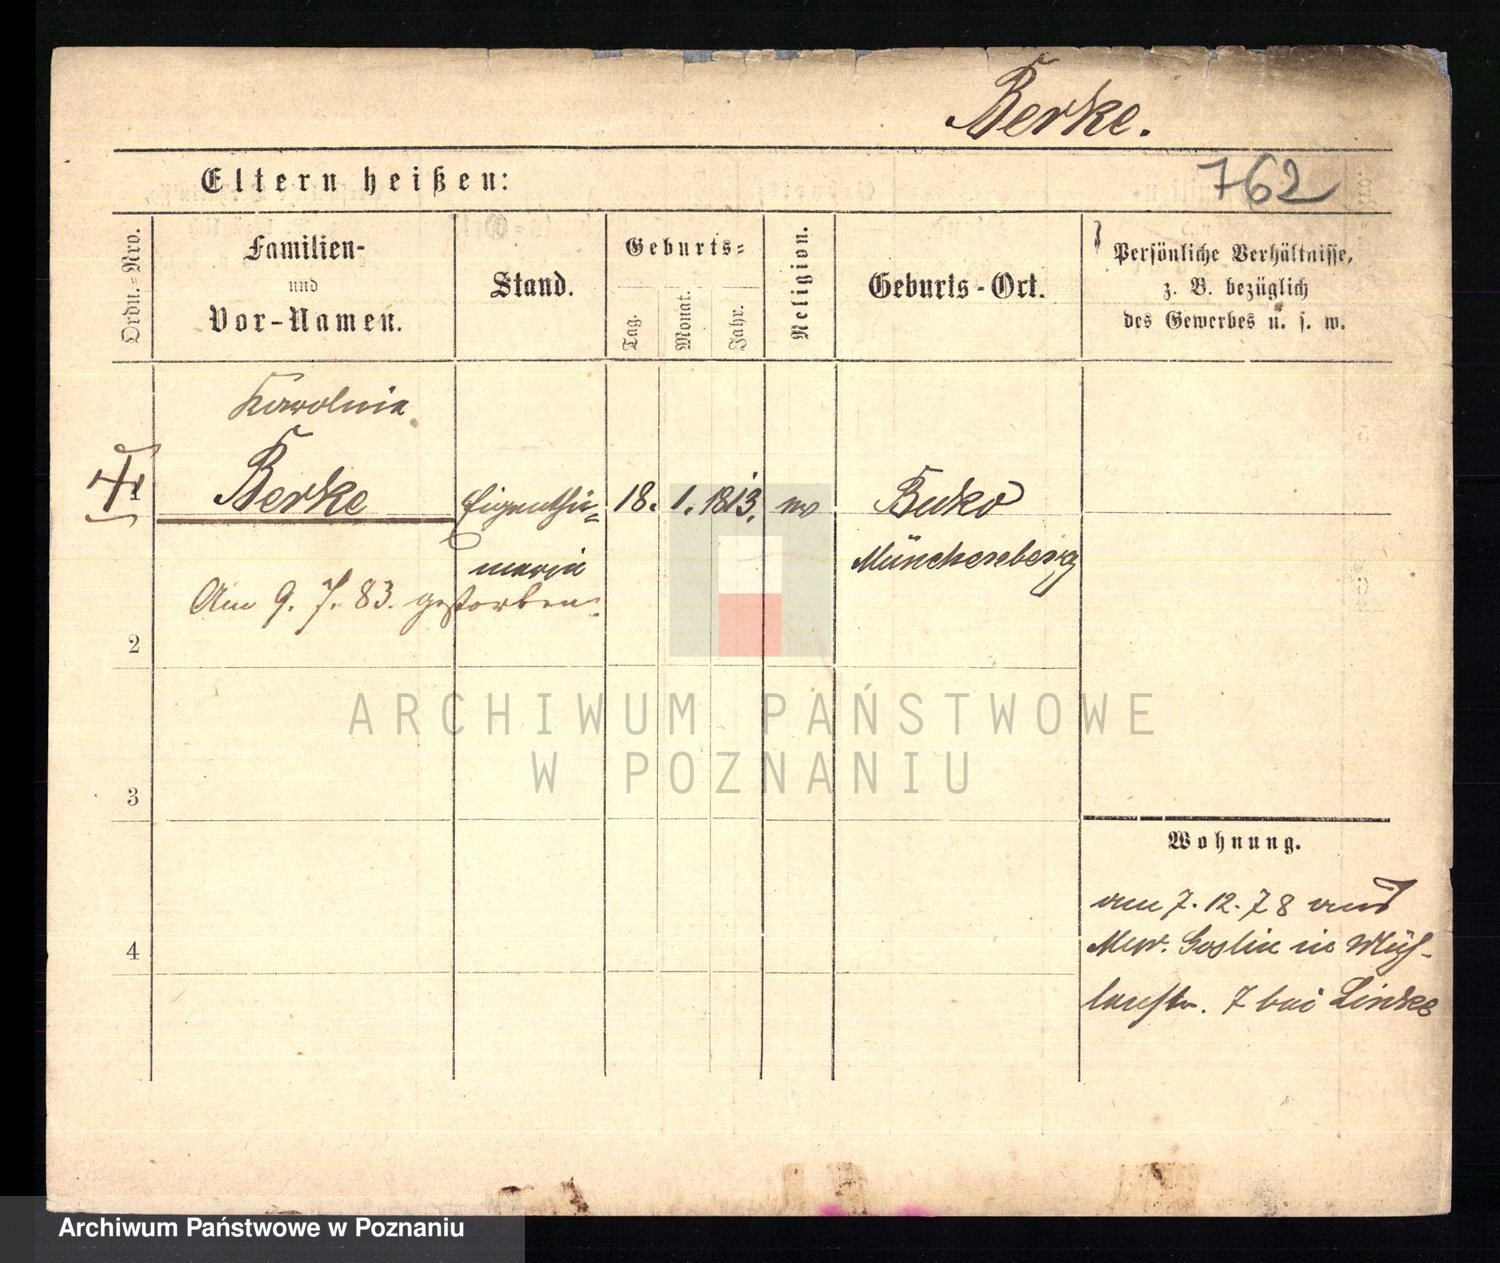 Berke.
762
Eltern heißen:
Ordn.-Nro.
Familien-
und
Vor-Namen.
Stand.
Geburts-
Tag.
Monat.
Jahr.
Religion.
Geburts-Ort.
Persönliche Verhältnisse,
z. B. bezüglich
des Gewerbes u. s. w.
Karoline
1 Berke Eigenthü- 18. 1. 1813. ev Buko
merin Müncheberg
Am 9. 7. 83. gestorben.
2
3
4
Wohnung.
am 7. 12. 78 aus
Mur. Goslin in Müh-
lenstr. 7 bei Linke
ARCHIWUM PAŃSTWOWE
W POZNANIU
Archiwum Państwowe w Poznaniu